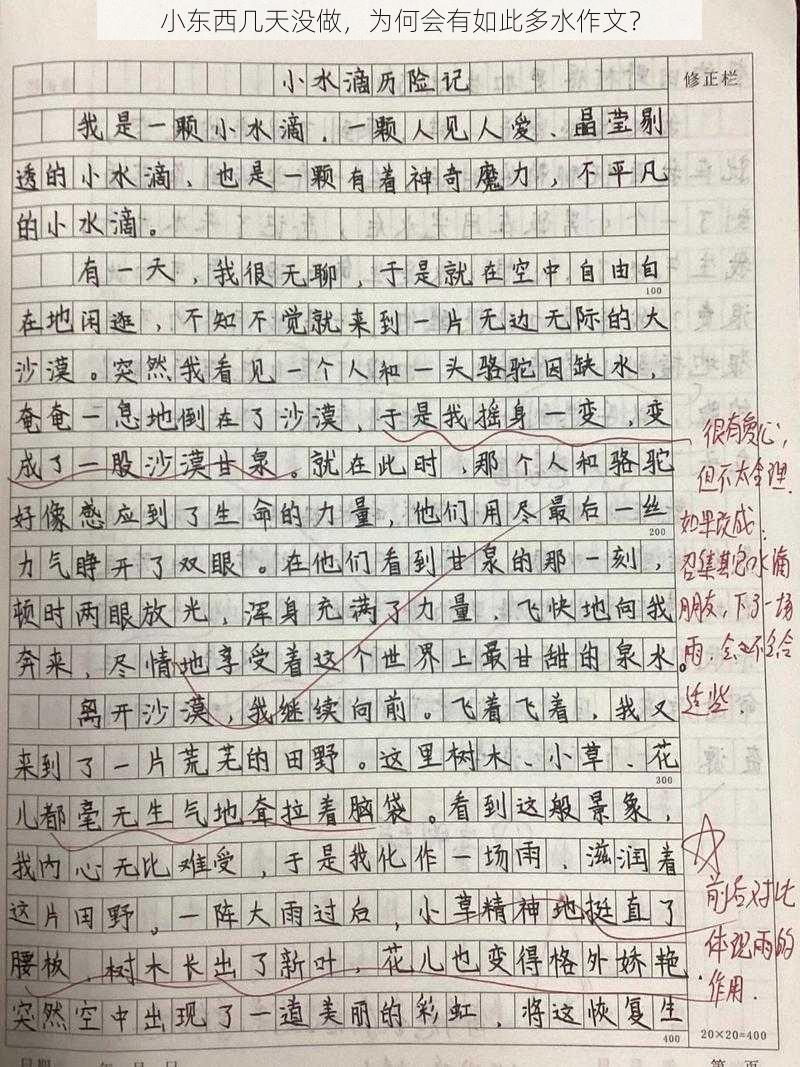 小东西几天没做，为何会有如此多水作文？
小水滴历险记
修正栏
我是一颗小水滴，一颗人见人爱、晶莹剔
透的小水滴、也是一颗有着神奇魔力，不平凡
的小水滴。
有一天，我很无聊，于是就在空中自由自
100
在地闲逛，不知不觉就来到一片无边无际的大
沙漠。突然我看见一个人和一头骆驼因缺水，
奄奄一息地倒在了沙漠，于是我摇身一变，变
成了一股沙漠甘泉。就在此时，那个人和骆驼
好像感应到了生命的力量，他们用尽最后一丝
200
力气睁开了双眼。在他们看到甘泉的那一刻，
顿时两眼放光，浑身充满了力量，飞快地向我
奔来，尽情地享受着这个世界上最甘甜的泉水。
很有爱心，
但不太合理.
如果改成：
召集其它水滴
朋友，下了一场
雨，会不会合
适些.
离开沙漠，我继续向前。飞着飞着，我又
来到了一片荒芜的田野。这里树木、小草、花
300
儿都毫无生气地耷拉着脑袋。看到这般景象，
我内心无比难受，于是我化作一场雨，滋润着
这片田野。一阵大雨过后，小草精神地挺直了
腰板，树木长出了新叶，花儿也变得格外娇艳.
突然空中出现了一道美丽的彩虹，将这恢复生
400
前后对比
体现雨的
作用.
20×20=400